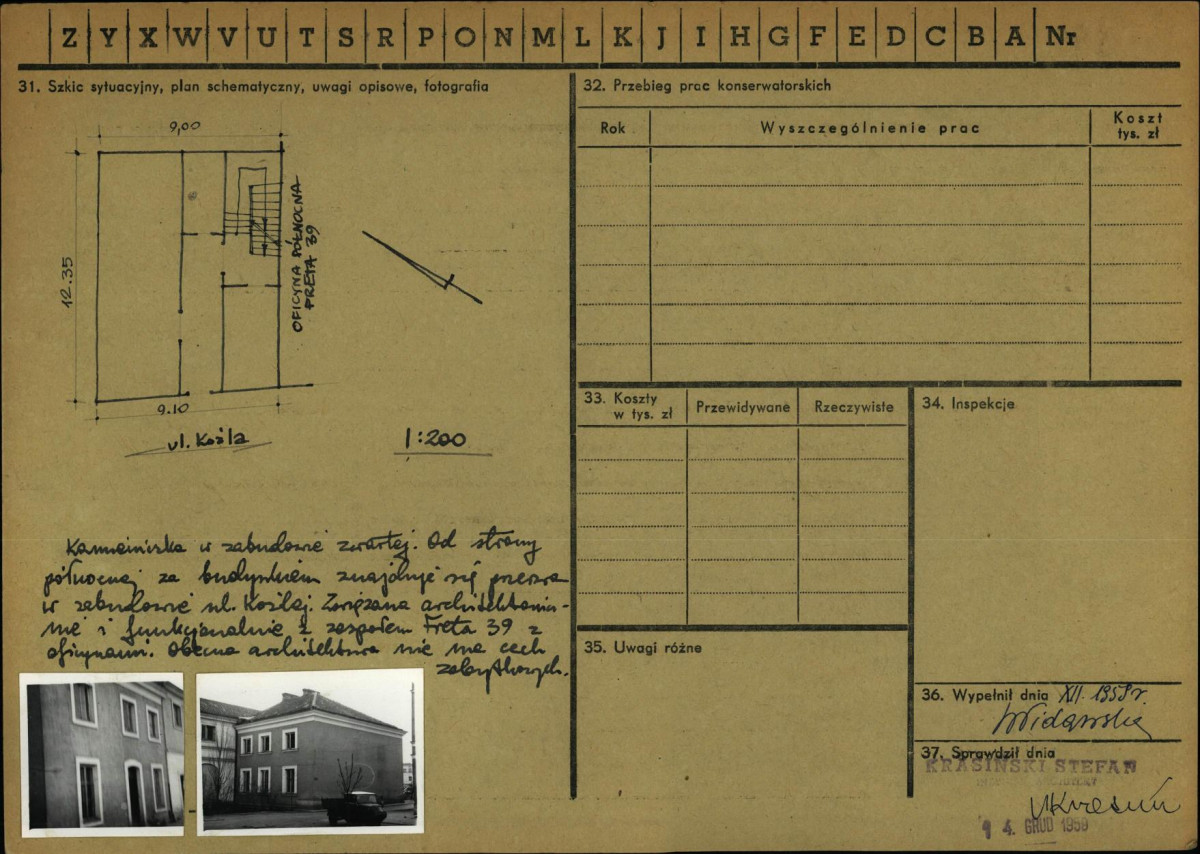 Z Y X W V U T S R P O N M L K J I H G F E D C B A Nr
31. Szkic sytuacyjny, plan schematyczny, uwagi opisowe, fotografia
9,00
12.35
OFICYNA PÓŁNOCNA
FRETA 39
9.10
ul. Koźla
1:200
Kamieniczka w zabudowie zwartej. Od strony
północnej za budynkiem znajduje się przerwa
w zabudowie ul. Koźlej. Związana architektonicz-
nie i funkcjonalnie z zespołem Freta 39 z
oficynami. Obecna architektura nie ma cech
zabytkowych.
32. Przebieg prac konserwatorskich
Rok
Wyszczególnienie prac
Koszt
tys. zł
33. Koszty
w tys. zł
Przewidywane
Rzeczywiste
34. Inspekcje
35. Uwagi różne
36. Wypełnił dnia XII. 1959 r.
37. Sprawdził dnia
KRASIŃSKI STEFAN
1 4. GRUD 1959